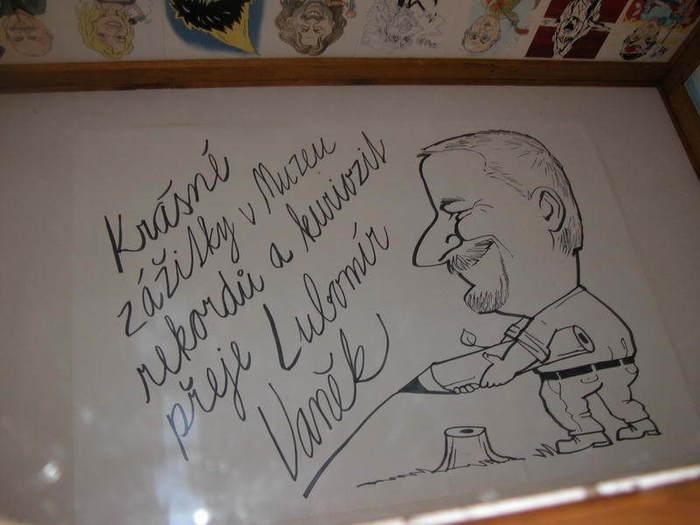 Krásné
zážitky v Muzeu
rekordů a kuriozit
přeje Lubomír
Vaněk